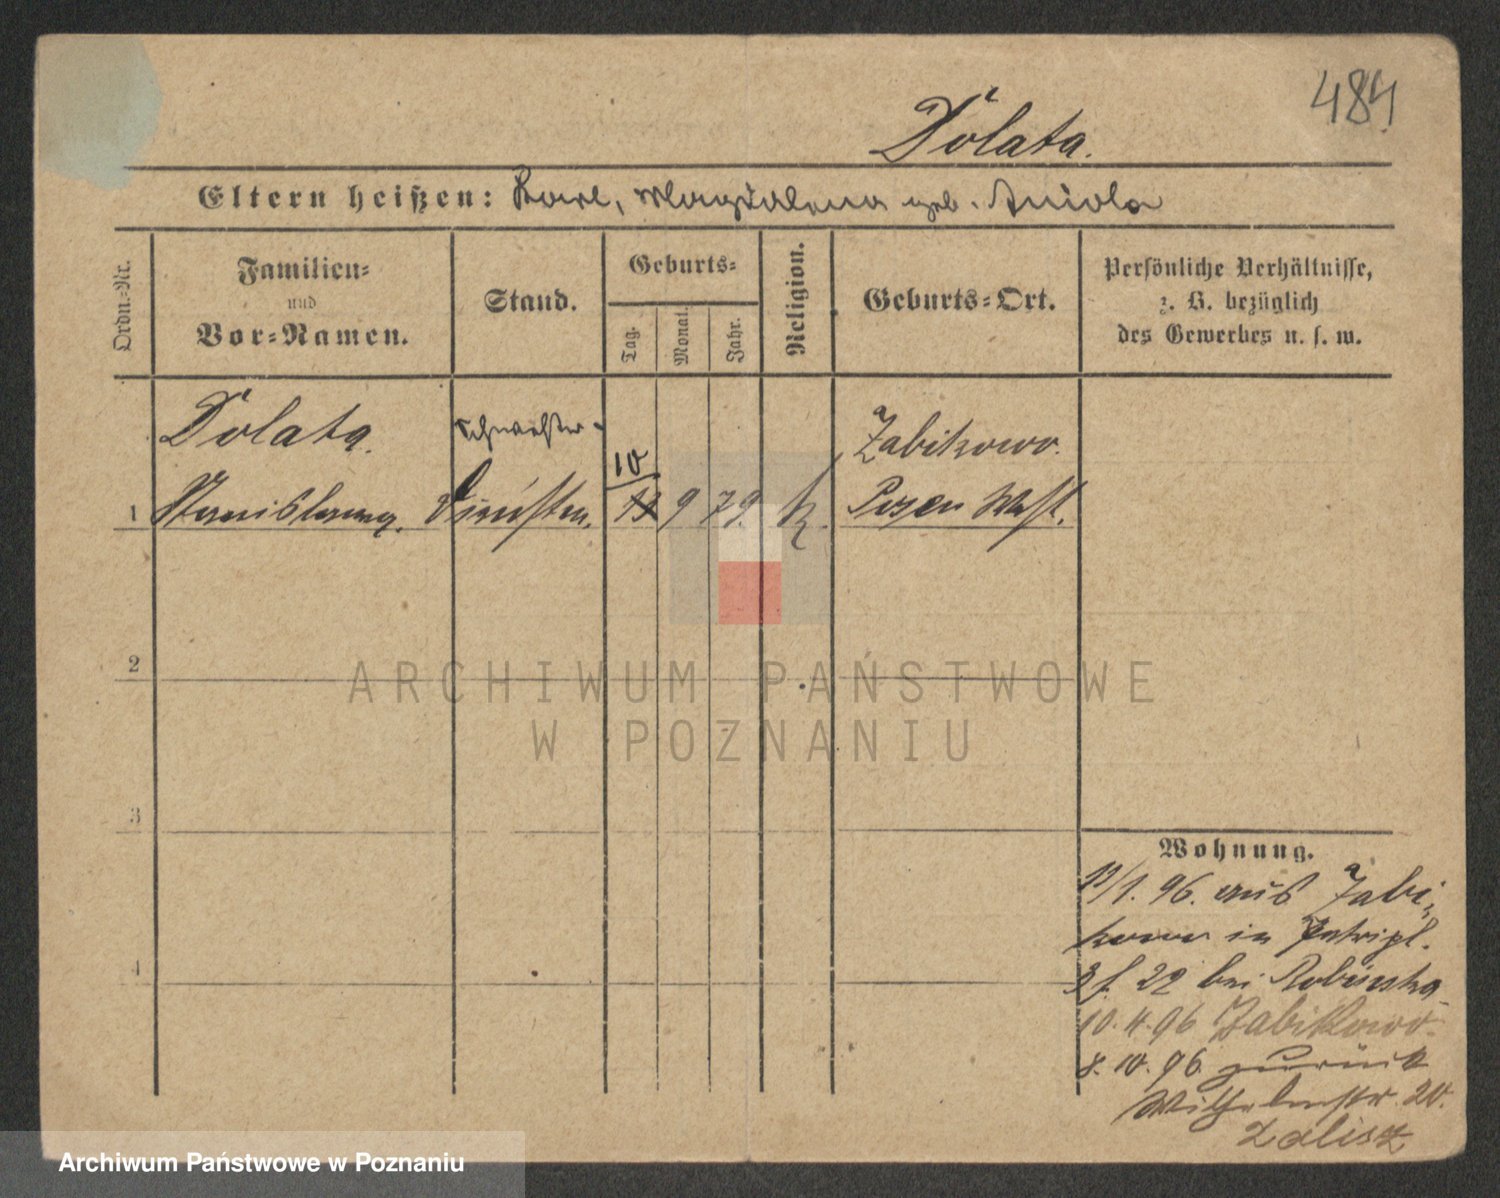 484
Dolata.
Eltern heißen: Karl, Magdalena geb. Aniola
Ordn.-Nr.
Familien-
und
Vor-Namen.
Stand.
Geburts-
Tag.
Monat.
Jahr.
Religion.
Geburts-Ort.
Persönliche Verhältnisse,
z. B. bezüglich
des Gewerbes u. s. w.
Dolata.
Zabikowo.
10
1 Stanislawa. 13 9 79. k. Posen West.
2
ARCHIWUM PAŃSTWOWE
W POZNANIU
3
Wohnung.
13/1. 96. aus Zabi-
kowo in Petripl.
22 bei
10.4.96 Zabikowo.
8.10.96. zurück
Wilhelmstr. 20.
4
Archiwum Państwowe w Poznaniu